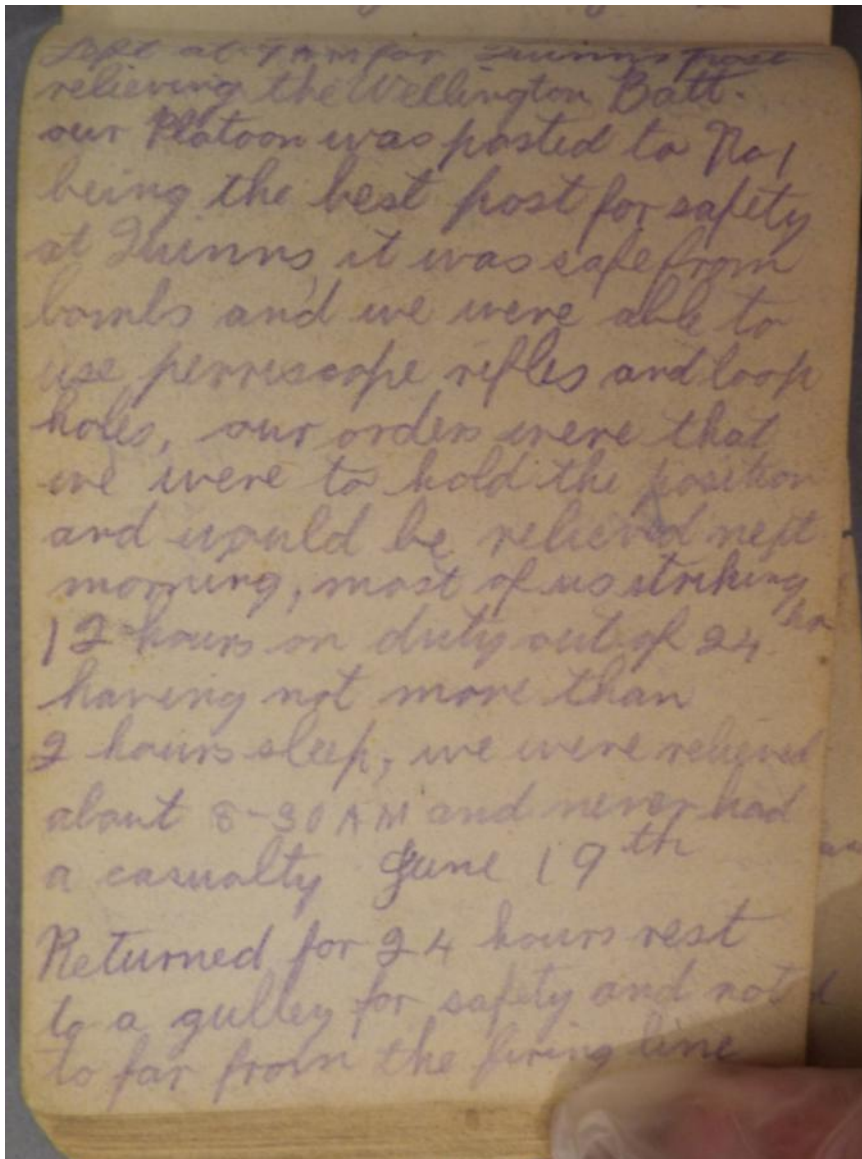 Left at 7 AM for Quinns post
relieving the Wellington Batt.
our Platoon was posted to No 1
being the best post for safety
at Quinns, it was safe from
bombs and we were able to
use perriscope rifles and loop
holes, our orders were that
we were to hold the position
and would be relieved next
morning, most of us striking
12 hours on duty out of 24 hrs
having not more than
2 hours sleep, we were relieved
about 8-30 AM and never had
a casualty June 19th
Returned for 24 hours rest
to a gulley for safety and not
to far from the firing line